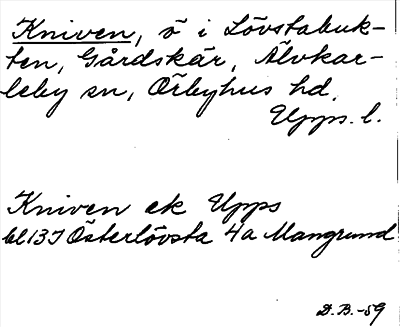 Kniven, ö i Lövstabuk-
ten, Gårdskär, Älvkar-
leby sn, Örbyhus hd,
Upps. l.
Kniven ek Upps
bl 13J Österlövsta 4a Mangrund
D.B.-59